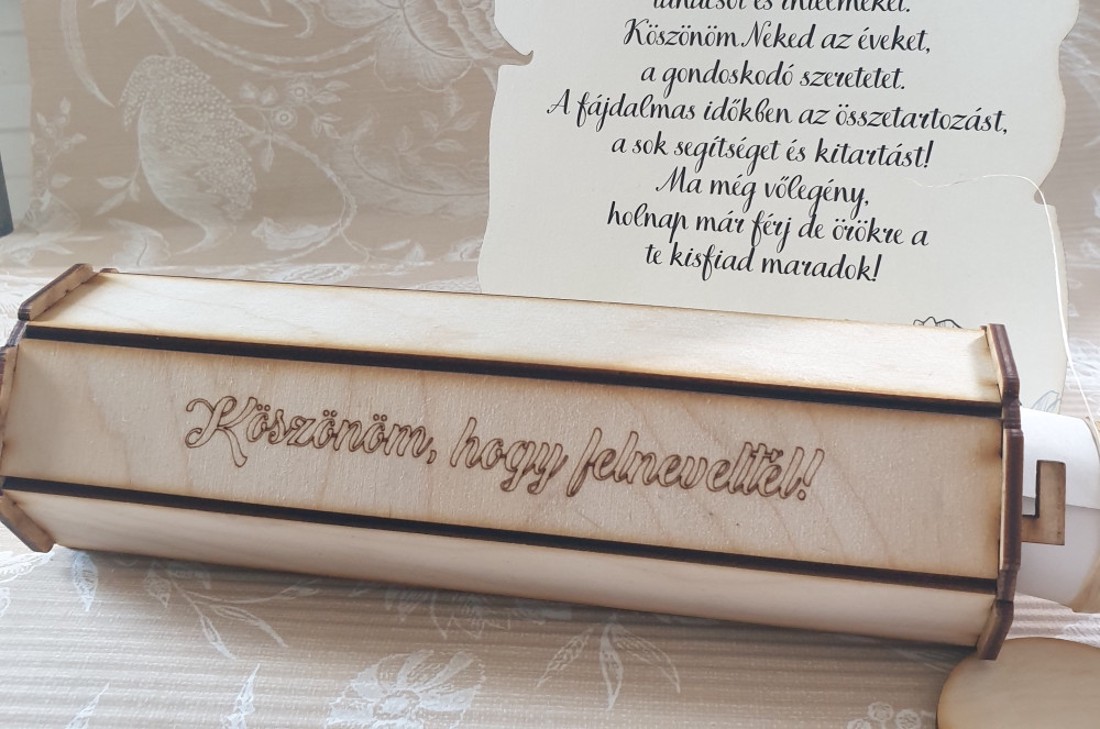 tanácsot és intelmeket.
Köszönöm Neked az éveket,
a gondoskodó szeretetet.
A fájdalmas időkben az összetartozást,
a sok segítséget és kitartást!
Ma még vőlegény,
holnap már férj de örökre a
te kisfiad maradok!
Köszönöm, hogy felneveltél!